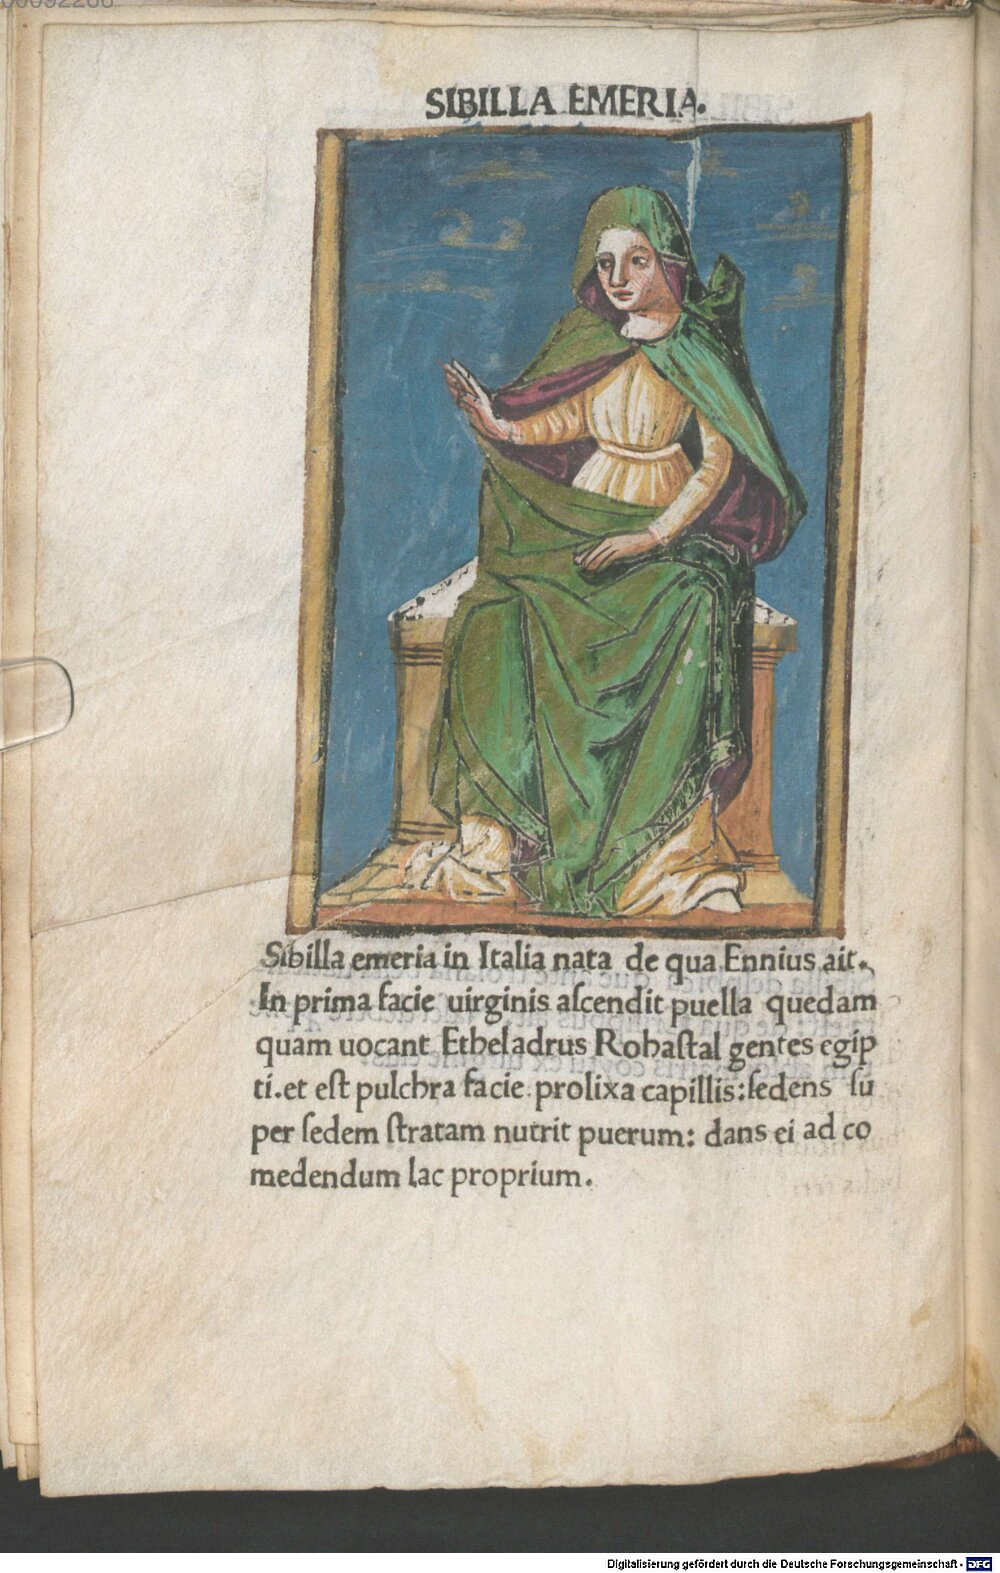 SIBILLA EMERIA.
Sibilla emeria in Italia nata de qua Ennius ait.
In prima facie uirginis aſcendit puella quedam
quam uocant Etheladrus Rohaſtal gentes egip
ti.et eſt pulchra facie prolixa capillis:ſedens ſu
per ſedem ſtratam nutrit puerum: dans ei ad co
medendum lac proprium.
Digitalisierung gefördert durch die Deutsche Forschungsgemeinschaft - DFG